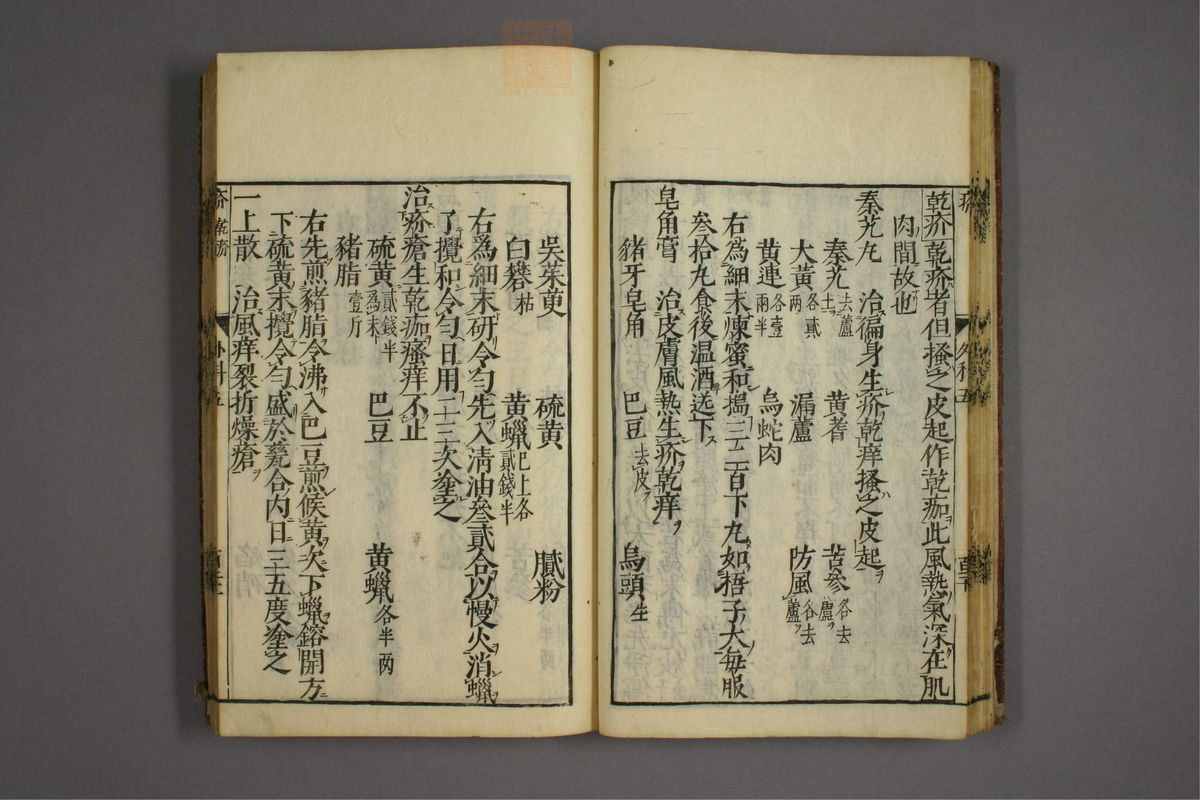 乾疥乾疥者但搔之皮起作乾痂此風熱氣深在肌
肉間故也
秦艽丸 治徧身生疥乾痒搔之皮起
秦艽去蘆土 黄蓍 苦參各去蘆
大黄各貳兩 漏蘆 防風各去蘆
黄連各壹兩半 烏蛇肉
右爲細末煉蜜和搗三二百下丸如梧子大每服
叁拾丸食後温酒送下
皂角膏 治皮膚風熱生疥乾痒
豬牙皂角 巴豆去皮 烏頭生
吳茱萸 硫黄 膩粉
白礬枯 黄蠟已上各貳錢半
右爲細末研令勻先入淸油叁貳合以慢火消蠟
了攪和令勻日用二三次塗之
治疥瘡生乾痂瘙痒不止
硫黄貳錢半爲末 巴豆 黄蠟各半兩
豬脂壹斤
右先煎豬脂令沸入巴豆煎候黄次下蠟鎔開方
下硫黄末攪令勻盛於甆合内日三五度塗之
一上散 治風痒裂折燥瘡
疥 乾疥
外科五